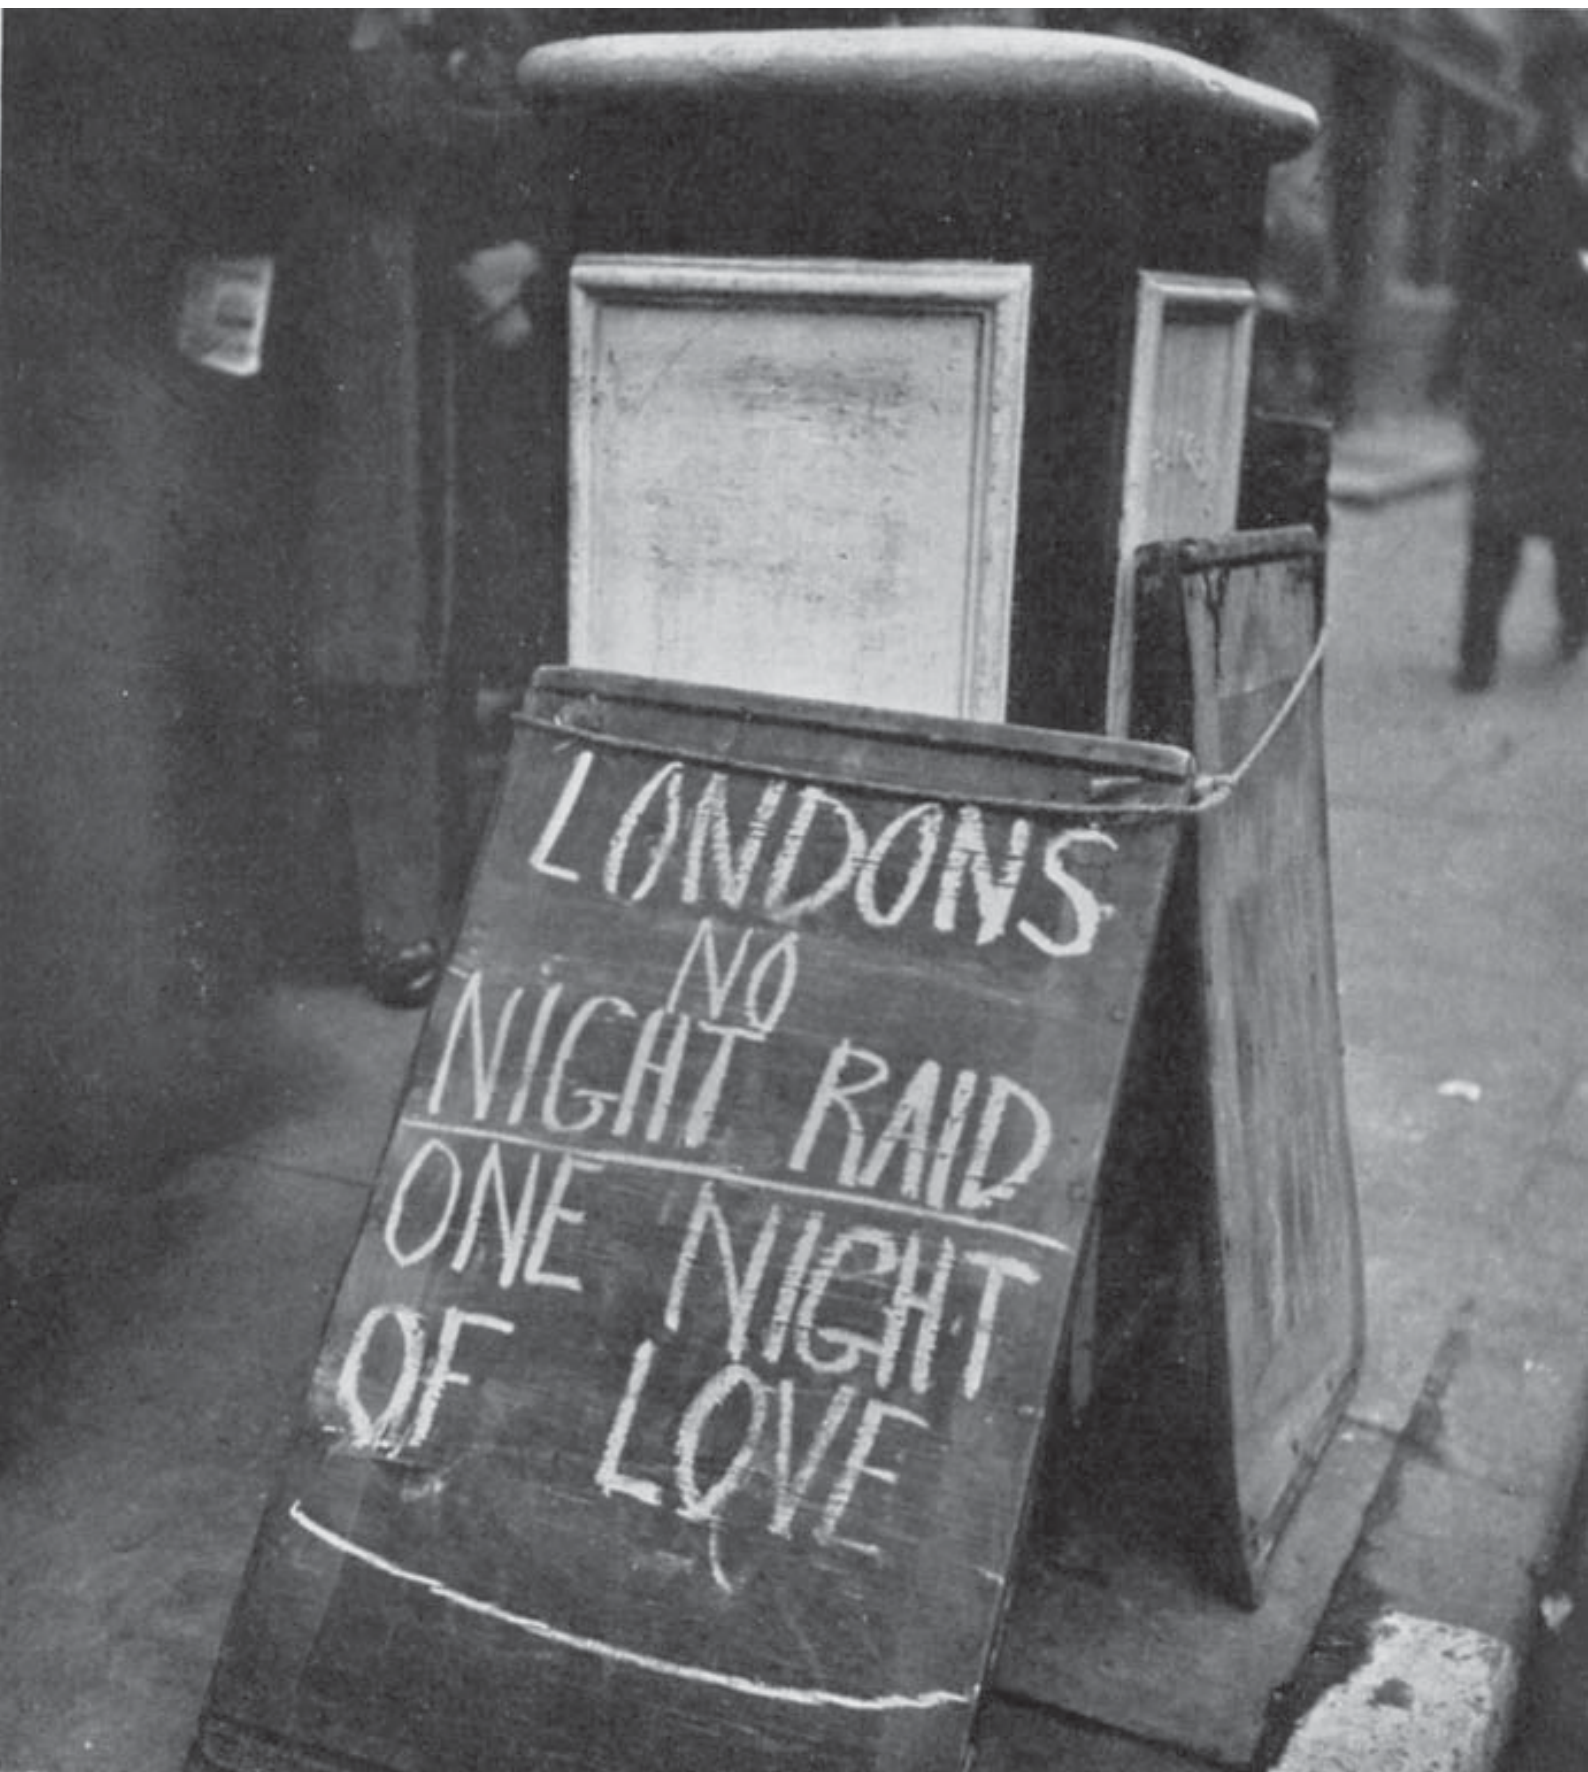 LONDONS
NO
NIGHT RAID
ONE NIGHT
OF LOVE